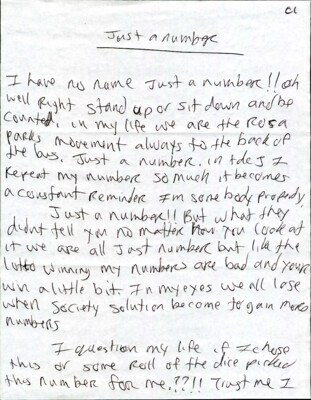 Just a number
I have no name Just a number!! oh
well Right stand up or sit down and be
counted. in my life we are the Rosa
parks movement always to the back of
the bus. Just a number. in tdcJ I
Repeat my number so much it becomes
a constant Reminder I'm somebody property
Just a number!! But what they
didnt tell you no matter how you look at
it we are all Just number but like the
Lotto winning my numbers are bad and yours
win a little bit In my eyes we all lose
when Society solution become to gain more
numbers
I question my life if I chose
this or some Roll of the dice picked
this number for me.??!! Trust me I